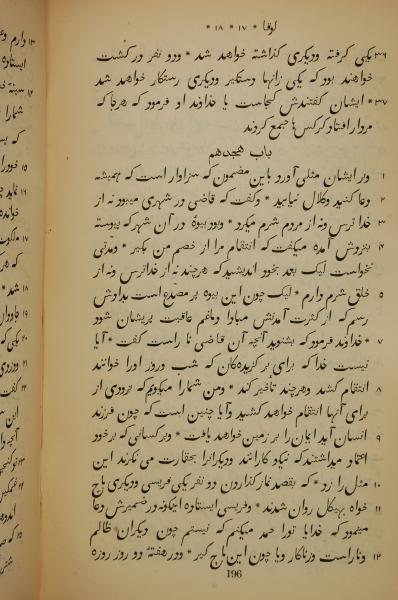 لوقا * ۱۷ * ۱۸ *
۳۶ یکی گرفته ودیگری گذاشته خواهد شد * ودو نفر در کشت
خواهند بود که یکی زانها دستگیر ودیگری رستگار خواهد شد
۳۷ * ایشان گفتندش کجاست یا خداوند او فرمود که هرجا که
مردار افتاد کرکس‌ها جمع کردند
باب هجدهم
۱ وبر ایشان مثلی آورد باین مضمون که سزاوار است که همیشه
۲ دعا کنید وکلال نیابید * وگفت که قاضی در شهری میبود نه از
۳ خدا ترس ونه از مردم شرم میکرد * وبود بیوهٔ در آن شهر که پیوسته
۴ بنزدش آمده میگفت که انتقام مرا از خصم من بگیر * ومدتی
نخواست لیک بعد بخود اندیشید که هرچند نه از خدا ترس ونه از
۵ خلق شرم دارم * لیک چون این بیوه بر مصدع است بداوش
رسم که از کثرت آمدنش مبادا دماغم عاقبت پریشان شود
۶ * خداوند فرمود که بشنوید آنچه آن قاضی نا راست گفت * آیا
نیست خدا که برای برگزیده‌گان که شب وروز اورا خوانند
۸ انتقام کشد وهرچند تاخیر کند * ومن شمارا میگویم که بزودی از
برای آنها انتقام خواهد کشید وآیا چنین است که چون فرزند
۹ انسان آید ایمان را بر زمین خواهد یافت * وبر کسانی که بر خود
اعتماد میداشتند که نیکو کارانند ودیگرانرا بحقارت می نگرند این
۱۰ مثل را زد * که بقصد نماز گذاردن دو نفر یکی فریسی ودیگری باج
۱۱ خواه بهیکل روان شدند * وفریسی ایستاده اینکونه در ضمیرش دعا
مینمود که خدایا تورا حمد میکنم که نیستم چون دیگران ظالم
۱۲ ونا راست وزناکار ویا چون این باج گیر * ودر هفتهٔ دو روز روزه
196